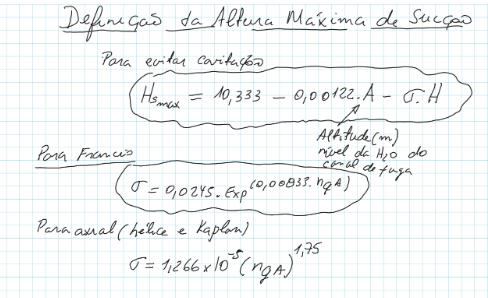 Definição da Altura Máxima de Sucção
Para evitar cavitação
Hs max = 10,333 - 0,00122.A - σ.H
Altitude (m)
nível da H2O do
canal de fuga
Para Francis
σ = 0,0245.Exp(0,00833.nqA)
Para axial (hélice e Kaplan)
σ = 1,266x10^-5 (nqA)^1,75